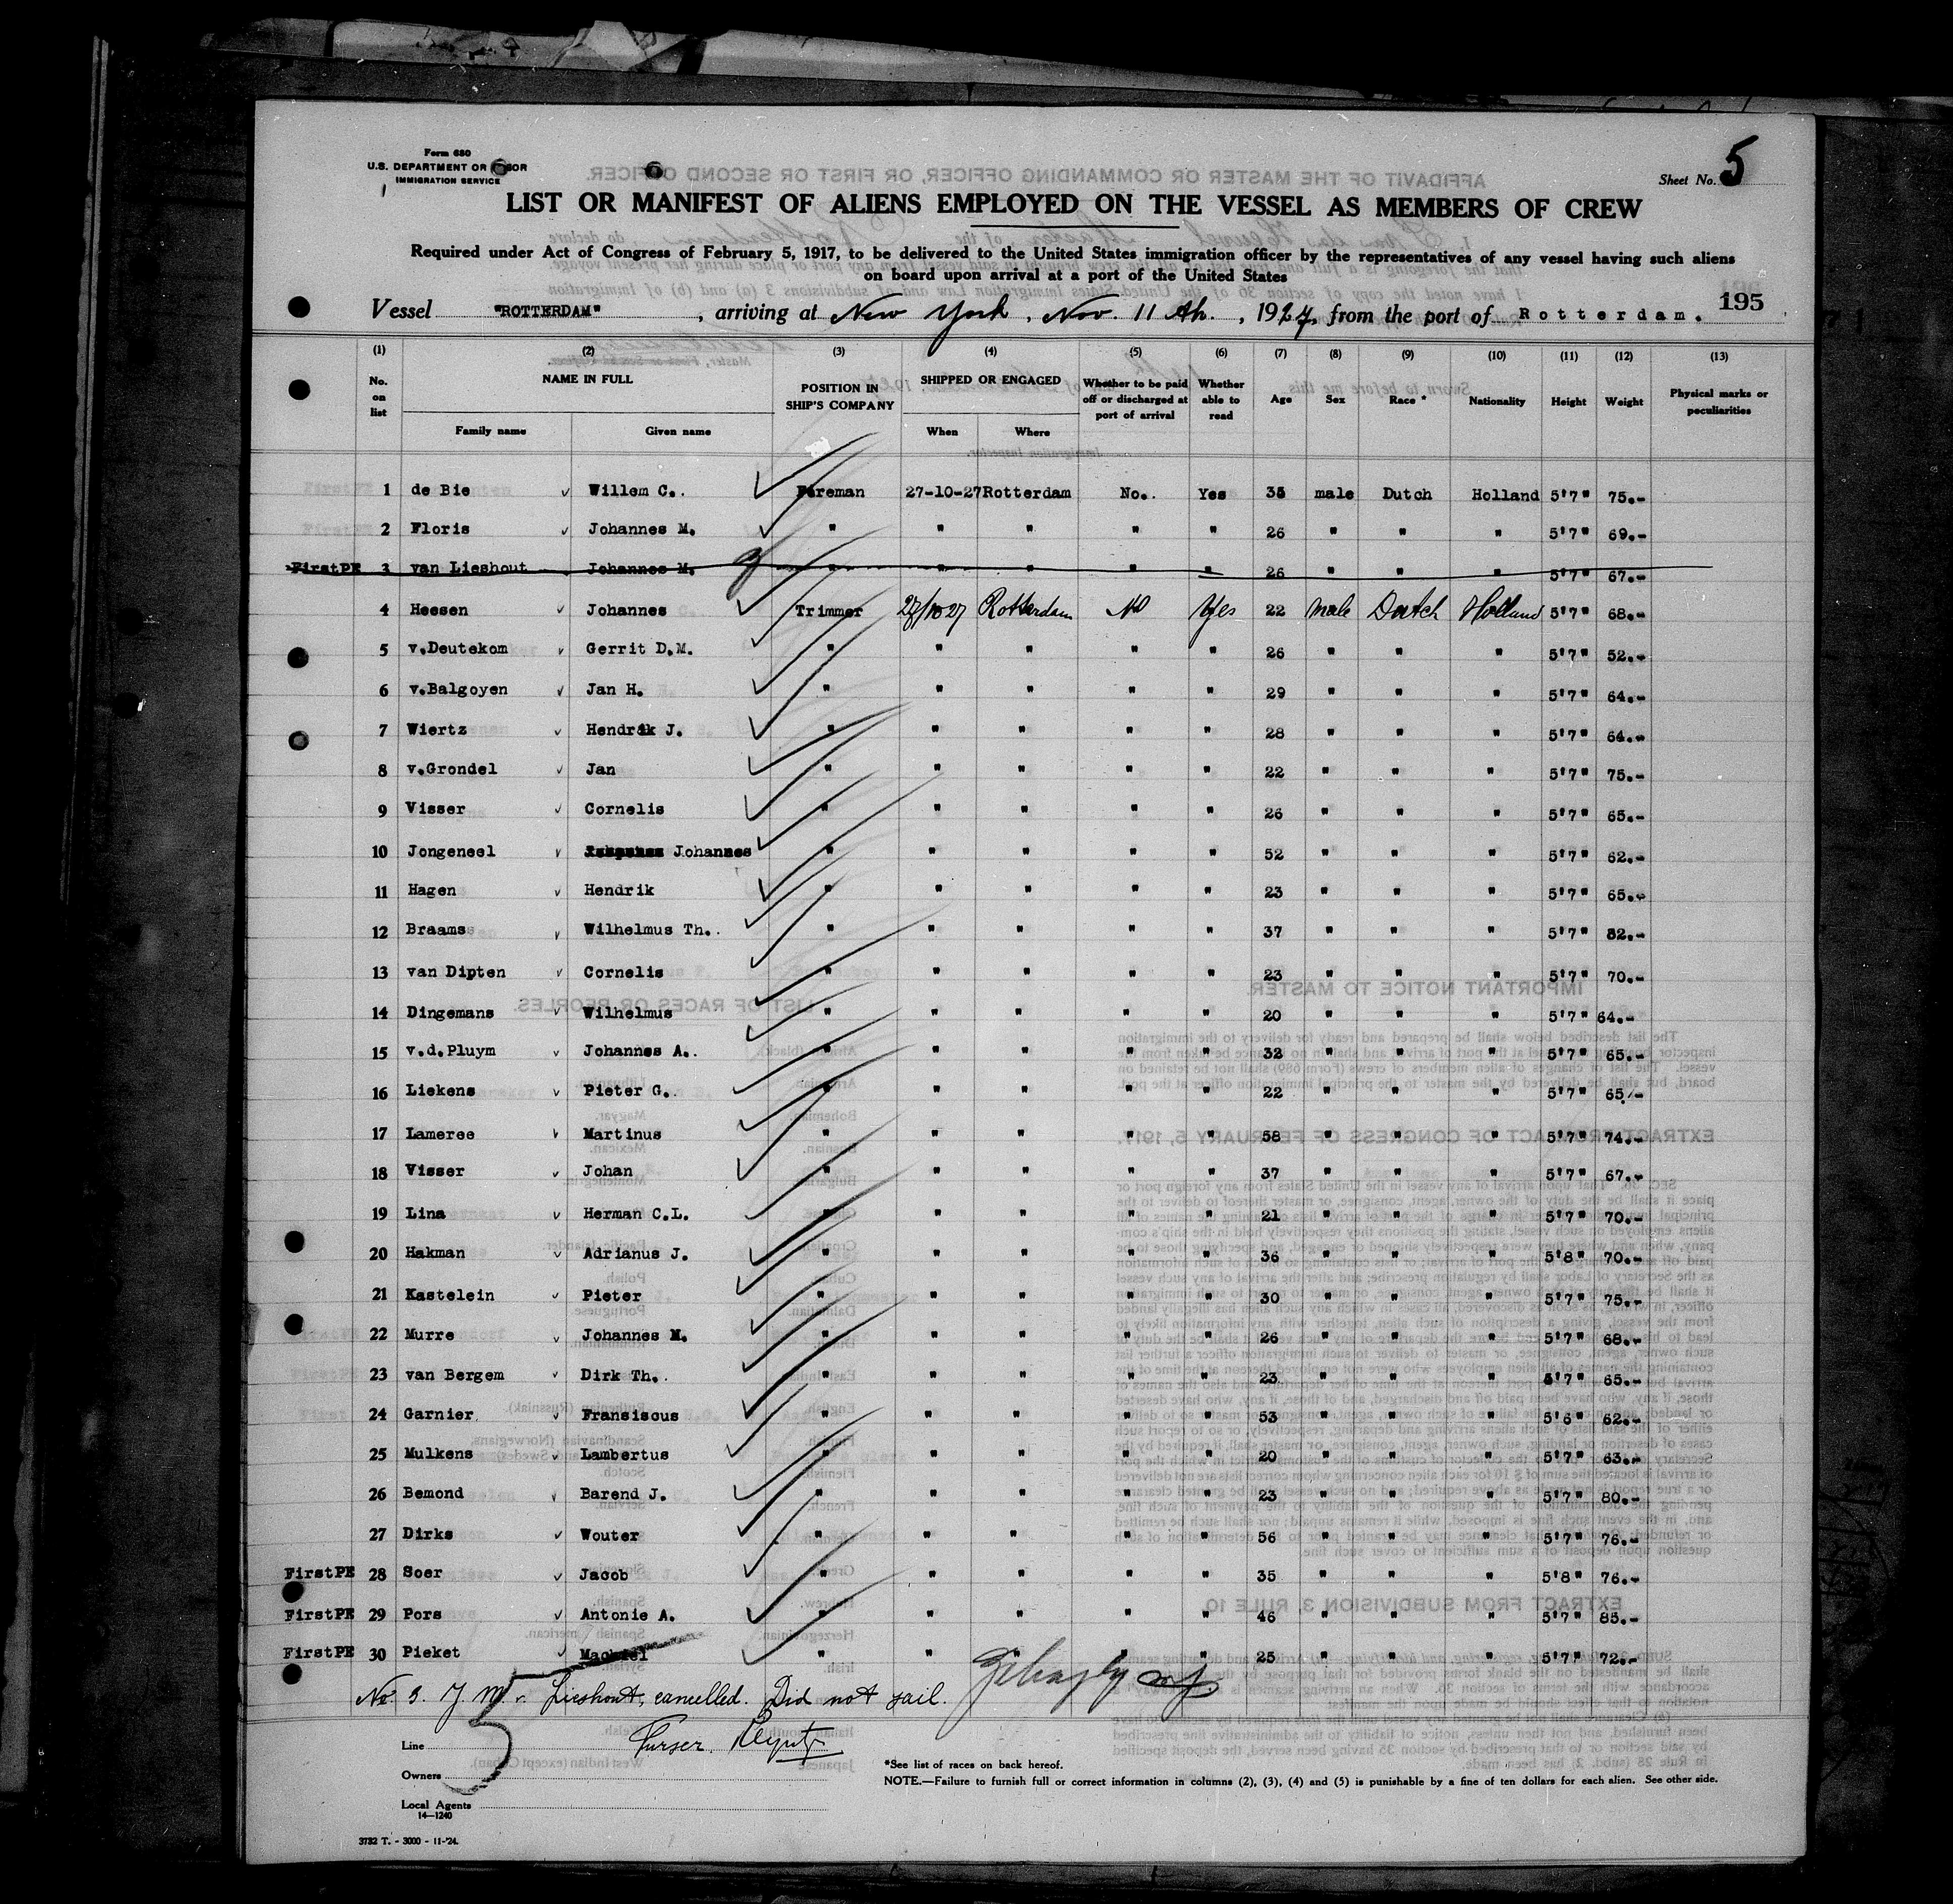 Form 680
U.S. DEPARTMENT OF LABOR
IMMIGRATION SERVICE
Sheet No. 5
LIST OR MANIFEST OF ALIENS EMPLOYED ON THE VESSEL AS MEMBERS OF CREW
Required under Act of Congress of February 5, 1917, to be delivered to the United States immigration officer by the representatives of any vessel having such aliens
on board upon arrival at a port of the United States
195
Vessel "ROTTERDAM", arriving at New York, Nov. 11 th., 1927, from the port of Rotterdam.
(1) (2) (3) (4) (5) (6) (7) (8) (9) (10) (11) (12) (13)
No. on list NAME IN FULL Family name Given name POSITION IN SHIP'S COMPANY SHIPPED OR ENGAGED When Where Whether to be paid off or discharged at port of arrival Whether able to read Age Sex Race * Nationality Height Weight Physical marks or peculiarities
1 de Bie Willem C. Fireman 27-10-27 Rotterdam No. Yes 35 male Dutch Holland 5'7" 75.-
2 Floris Johannes M. " " " " " 26 " " " 5'7" 69.-
FirstPE 3 van Lieshout Johannes M. " " " " " 26 " " " 5'7" 67.-
4 Heesen Johannes Trimmer 27/10 27 Rotterdam No Yes 22 male Dutch Holland 5'7" 68.-
5 v.Deutekom Gerrit D.M. " " " " " 26 " " " 5'7" 52.-
6 v.Balgoyen Jan H. " " " " " 29 " " " 5'7" 64.-
7 Wiertz Hendrik J. " " " " " 28 " " " 5'7" 64.-
8 v.Grondel Jan " " " " " 22 " " " 5'7" 75.-
9 Visser Cornelis " " " " " 26 " " " 5'7" 65.-
10 Jongeneel Johannes " " " " " 52 " " " 5'7" 62.-
11 Hagen Hendrik " " " " " 23 " " " 5'7" 65.-
12 Braams Wilhelmus Th. " " " " " 37 " " " 5'7" 82.-
13 van Dipten Cornelis " " " " " 23 " " " 5'7" 70.-
14 Dingemans Wilhelmus " " " " " 20 " " " 5'7" 64.-
15 v.d.Pluym Johannes A. " " " " " 32 " " " 5'7" 65.-
16 Liekens Pieter G. " " " " " 22 " " " 5'7" 65.-
17 Lameree Martinus " " " " " 58 " " " 5'7" 74.-
18 Visser Johan " " " " " 37 " " " 5'7" 67.-
19 Lina Herman C.L. " " " " " 21 " " " 5'7" 70.-
20 Hakman Adrianus J. " " " " " 36 " " " 5'8" 70.-
21 Kastelein Pieter " " " " " 30 " " " 5'7" 75.-
22 Murre Johannes M. " " " " " 26 " " " 5'7" 68.-
23 van Bergem Dirk Th. " " " " " 23 " " " 5'7" 65.-
24 Garnier Fransiscus " " " " " 53 " " " 5'6" 62.-
25 Mulkens Lambertus " " " " " 20 " " " 5'7" 63.-
26 Bemond Barend J. " " " " " 23 " " " 5'7" 80.-
27 Dirks Wouter " " " " " 56 " " " 5'7" 76.-
FirstPE 28 Soer Jacob " " " " " 35 " " " 5'8" 76.-
FirstPE 29 Pors Antonie A. " " " " " 46 " " " 5'7" 85.-
FirstPE 30 Pieket Machiel " " " " " 25 " " " 5'7" 72.-
No 3. J. M. v. Lieshout, cancelled. Did not sail.
5
Purser.
Line
Owners
Local Agents
14—1240
*See list of races on back hereof.
NOTE.—Failure to furnish full or correct information in columns (2), (3), (4) and (5) is punishable by a fine of ten dollars for each alien. See other side.
3732 T. - 3000 - 11-'24.